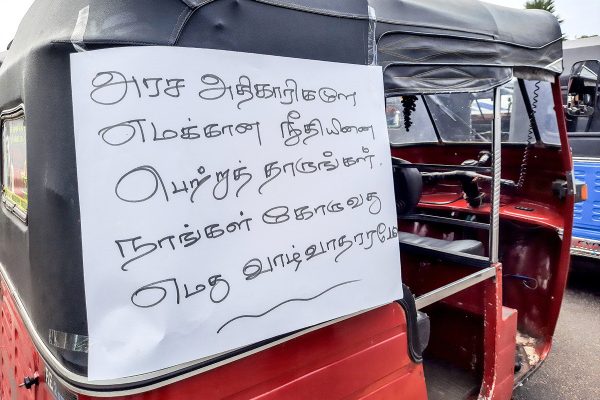 அரச அதிகாரிகளே
எமக்கான நீதியினை
பெற்றுத் தாருங்கள்.
நாங்கள் கோருவது
எமது வாழ்வாதாரமே